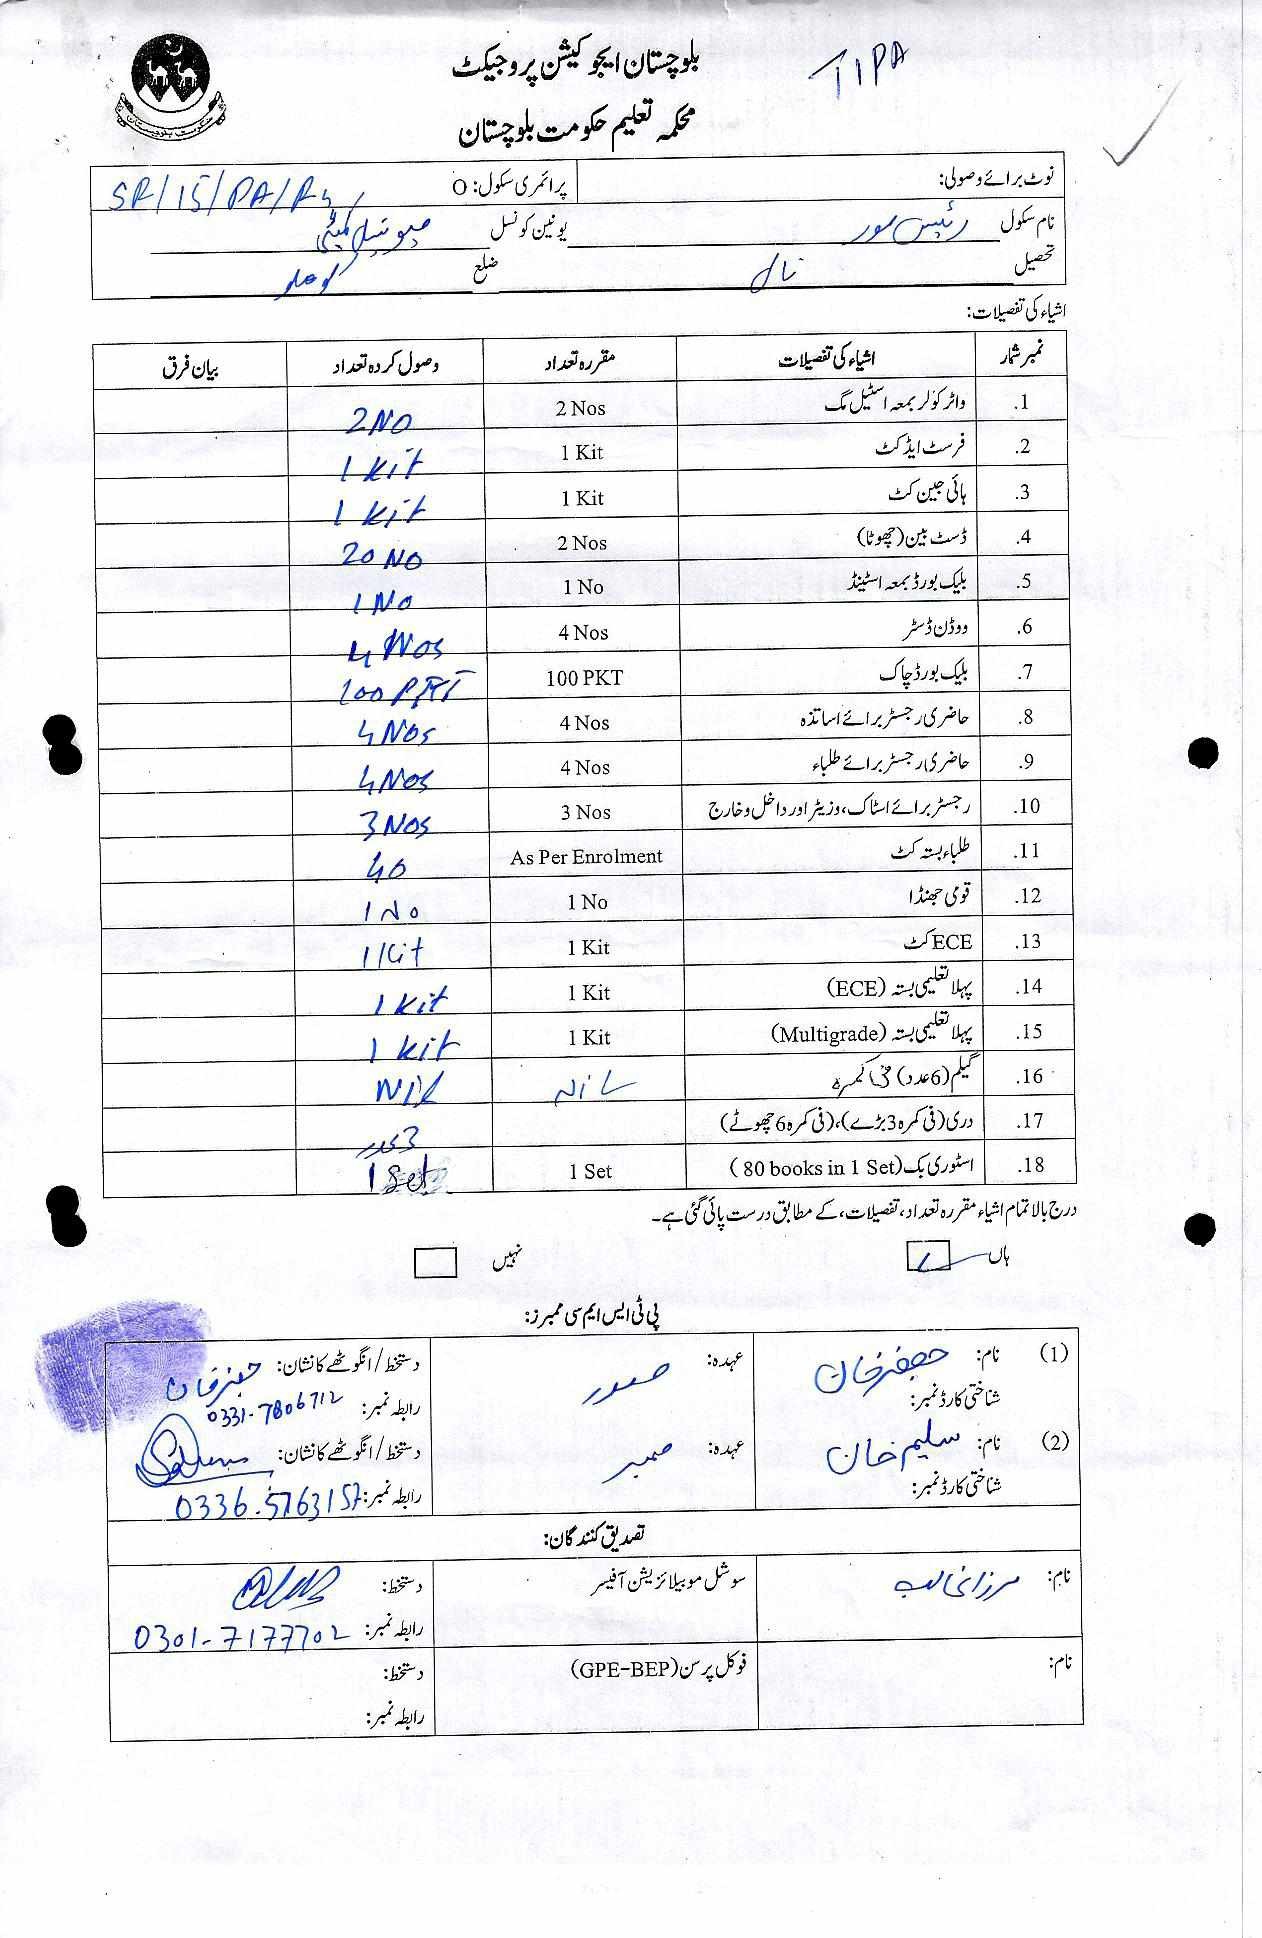 بلوچستان ایجوکیشن پروجیکٹ
TIPA
محکمہ تعلیم حکومت بلوچستان
نوٹ برائے وصولی: پرائمری سکول: O SR/15/PA/
نام سکول رئیس یونین کونسل میونسپل کمیٹی
تحصیل نال ضلع
اشیاء کی تفصیلات:
نمبر شمار اشیاء کی تفصیلات مقررہ تعداد وصول کردہ تعداد بیان فرق
1. واٹر کولر بمعہ اسٹیل مگ 2 Nos 2 NO
2. فرسٹ ایڈ کٹ 1 Kit 1 Kit
3. ہائی جین کٹ 1 Kit 1 Kit
4. ڈسٹ بین (چھوٹا) 2 Nos 20 NO
5. بلیک بورڈ بمعہ اسٹینڈ 1 No 1 No
6. ووڈن ڈسٹر 4 Nos 4 Nos
7. بلیک بورڈ چاک 100 PKT 100 PKT
8. حاضری رجسٹر برائے اساتذہ 4 Nos 4 Nos
9. حاضری رجسٹر برائے طلباء 4 Nos 4 Nos
10. رجسٹر برائے اسٹاک، وزیٹر اور داخل و خارج 3 Nos 3 Nos
11. طلباء بستہ کٹ As Per Enrolment 40
12. قومی جھنڈا 1 No 1 No
13. ECE کٹ 1 Kit 1 Kit
14. پہلا تعلیمی بستہ (ECE) 1 Kit 1 Kit
15. پہلا تعلیمی بستہ (Multigrade) 1 Kit 1 Kit
16. گیلم (6 عدد) فی کمرہ NiL NiL
17. دری (فی کمرہ 3 بڑے)، (فی کمرہ 6 چھوٹے) 3 عدد
18. اسٹوری بک (80 books in 1 Set) 1 Set 1 Set
درج بالا تمام اشیاء مقررہ تعداد، تفصیلات، کے مطابق درست پائی گئی ہے۔
ہاں نہیں
پی ٹی ایس ایم سی ممبرز:
(1) نام: جعفر خان عہدہ: صدر دستخط / انگوٹھے کا نشان: جعفر خان
شناختی کارڈ نمبر: رابطہ نمبر: 0331-7806712
(2) نام: سلیم خان عہدہ: ممبر دستخط / انگوٹھے کا نشان:
شناختی کارڈ نمبر: رابطہ نمبر: 0336.5763157
تصدیق کنندگان:
نام: مرزا غالب سوشل موبیلائزیشن آفیسر دستخط:
رابطہ نمبر: 0301-7177702
نام: فوکل پرسن (GPE-BEP) دستخط:
رابطہ نمبر: